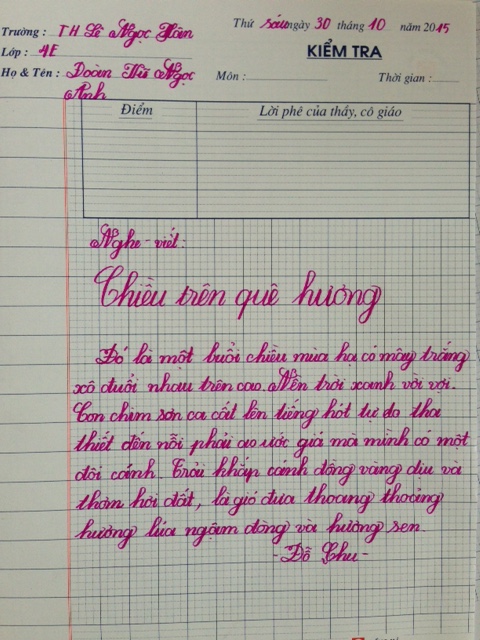 Trường : TH Lê Ngọc Hân
Thứ sáu ngày 30 tháng 10 năm 2015
Lớp : 4E
KIỂM TRA
Họ & Tên : Đoàn Thị Ngọc Anh
Môn :
Thời gian :
Điểm
Lời phê của thầy, cô giáo
Nghe - viết :
Chiều trên quê hương
Đó là một buổi chiều mùa hạ có mây trắng
xô đuổi nhau trên cao. Nền trời xanh vời vợi.
Con chim sơn ca cất lên tiếng hót tự do tha
thiết đến nỗi phải ao ước giá mà mình có một
đôi cánh. Trải khắp cánh đồng vàng dịu và
thơm hơi đất, là gió đưa thoang thoảng
hương lúa ngậm đòng và hương sen.
- Đỗ Chu -